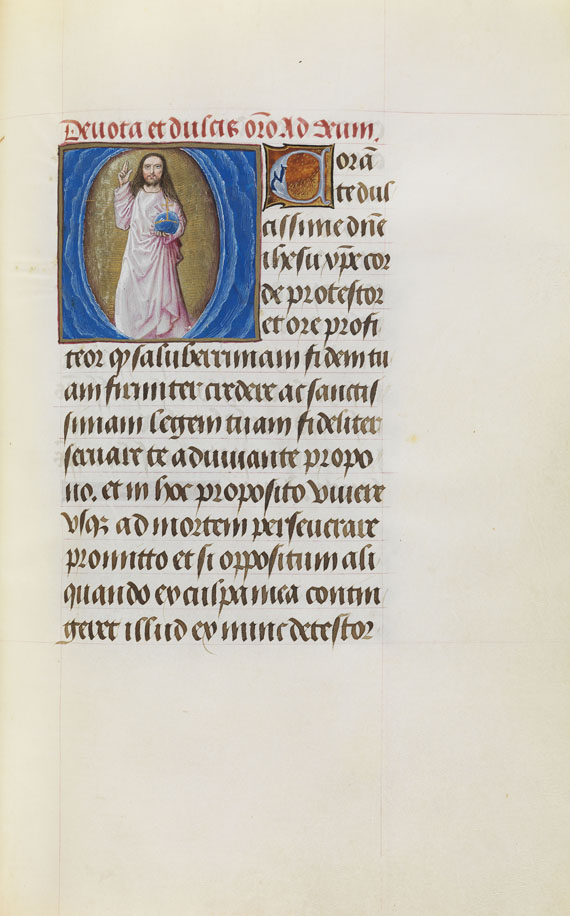 Deuota et dulcis or̄o Ad Xum.
Corā
te dul
cissime dn̄e
ihesu xp̄e cor
de protestor
et ore profi
teor ꝙ saluberrimam fidem tu
am firmiter credere ac sanctis
simam legem tuam fideliter
seruare te adiuuante propo
no. et in hoc proposito viuere
vsqꝫ ad mortem perseuerare
promitto et si oppositum ali
quando ex culpa mea contin
geret illud ex nunc detestor